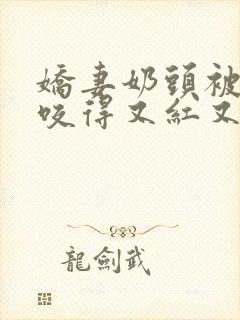 嬌妻奶頭被
咬得又紅又
龍劍武